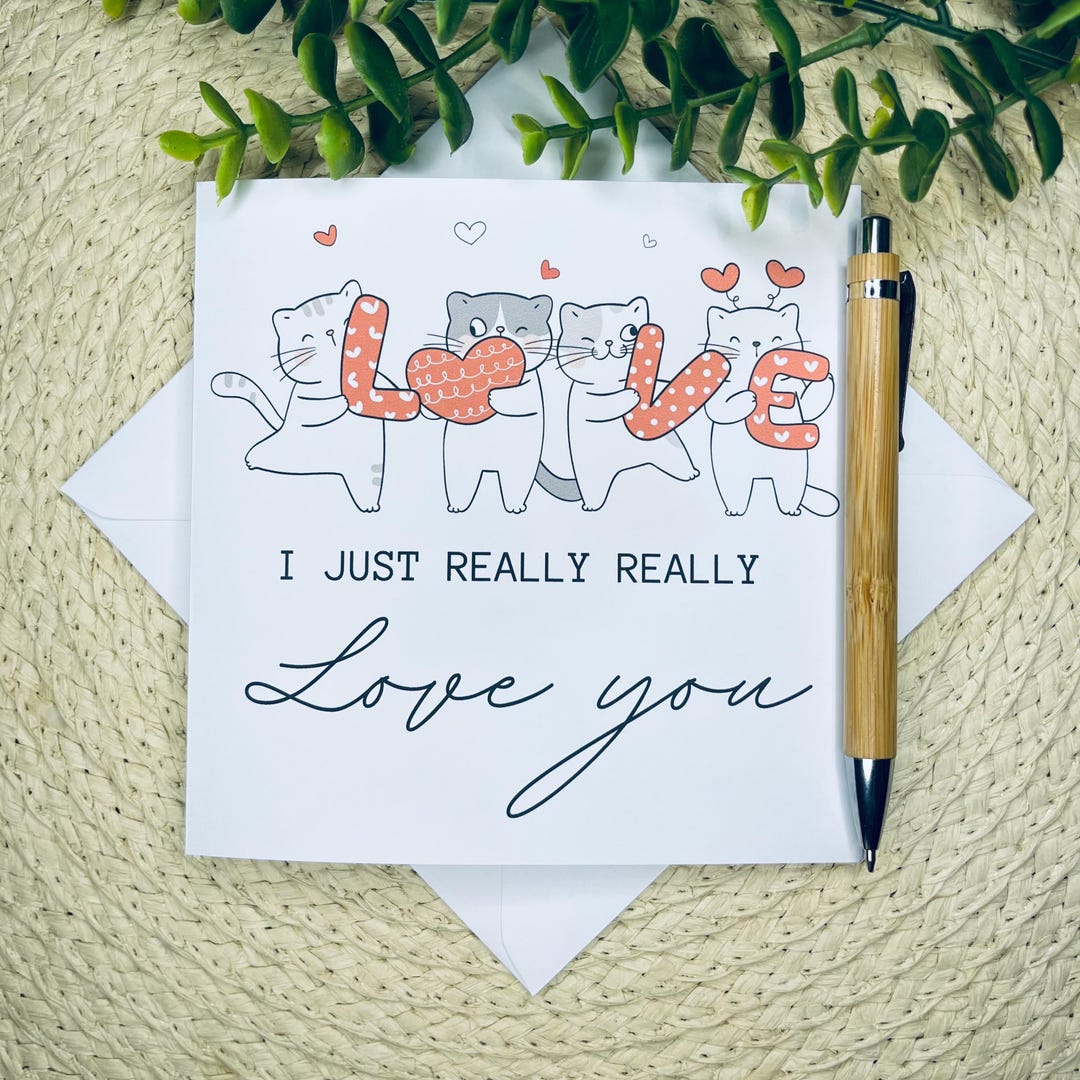 L♥VE
I JUST REALLY REALLY
Love you